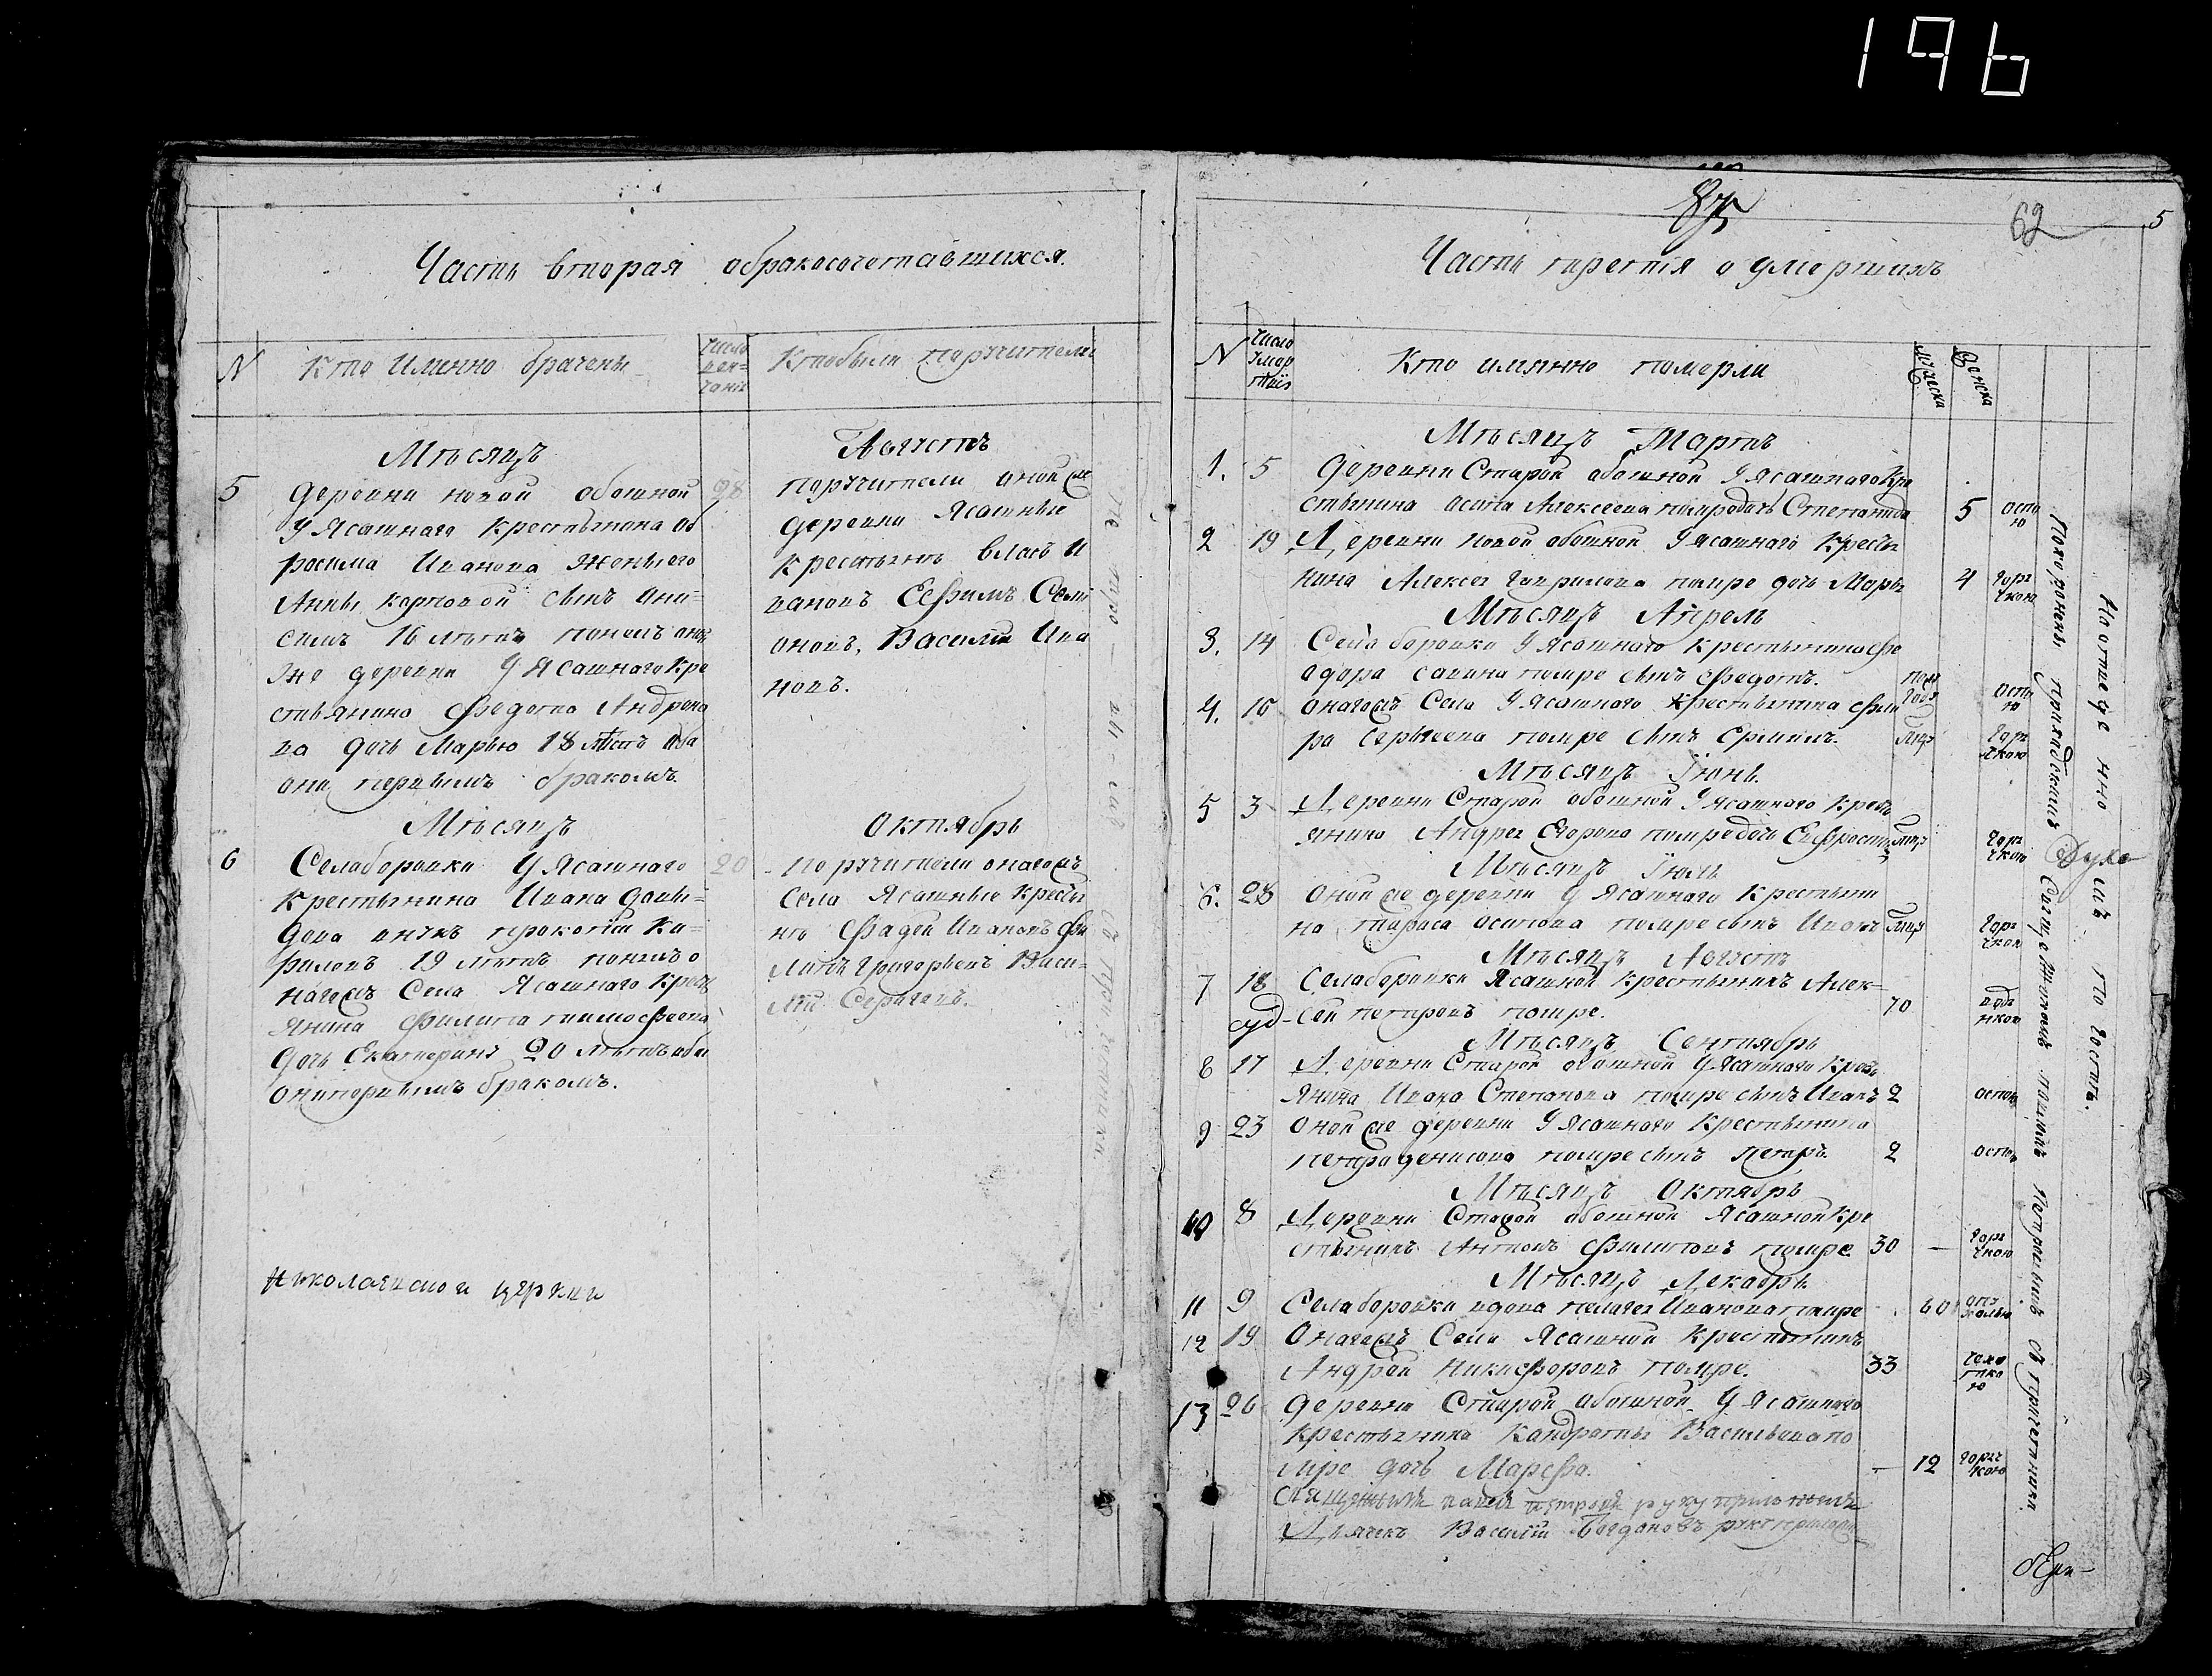 196
Часть вторая обракосочетавшихся
N
Кто Именно брачены
Число вен=чанiя
Кто были поручители
Мѣсяцъ Августъ
5
деревни новой обошной
28
У Ясашнаго крестьянина
росима Иванова
Анны карповой сынъ Они=
симъ 16 лѣтъ понялъ оной
же деревни У Ясашнаго Кре
стьянина Федота Андрея
ва дочь Марью 18 лѣтъ оба
они первымъ бракомъ.
поручители оной же
деревни Ясашные
крестьяне власъ И
вановъ Ефимъ Семи
оновъ, Василiй Ива
новъ.
Мѣсяцъ Октябрь
6
Села боровки У Ясашнаго
20
крестьянина Ивана Давы=
дова внукъ прокопiй Ка=
риловъ 19 лѣтъ понялъ о
нагожъ Села Ясашнаго Крест
янина Филипа тимофеева
дочь Екатерину 20 лѣтъ оба
они первымъ бракомъ.
поручители онагожъ
Села Ясашные Кресть
не Фадей Ивановъ Фи
липъ Григорьевъ Васи=
лiй Сергеевъ.
Николаевской церкви
87
62
5
Часть третiя о умершихъ
N
Число умер шихъ
Кто имянно померли
Мужеска
Женска
Мѣсяцъ Мартъ
1. 5 деревни Старой обошной У ясашнаго Кре
стьянина осипа Алексеева помре дочь Степанида 5 оспою
2 19 Деревни новой обошной У ясашнаго Кресть
нина Алексея Гаврилова помре дочь Марья 4 горячкою
Мѣсяцъ Апрель
3. 14 Села боровки У Ясашнаго крестьянина Фе
одора савина помре сынъ Федотъ. пол года оспою
4. 15 онагожъ Села У Ясашнаго Крестьянина
ра Сергеева помре сынъ Ермилъ. горячкою
Мѣсяцъ Iюнь
5 3 Деревни Старой обошной У ясашнаго крестъ
янина Андрея Егорова помре дочь горячкою
Мѣсяцъ Iюль
6. 28 Оной же деревни У Ясашнаго Крестьяни
на тараса осипова помре сынъ Иванъ горячкою
Мѣсяцъ Августъ
7 18 Села боровки Ясашной крестьянинъ Алек=
сей петровъ помре. 70
Мѣсяцъ Сентябрь
8 17 Деревни Старой обошной У Ясашнаго Кресть
янина Ивана Степанова помре сынъ Иванъ 2 оспою
9 23 Оной же деревни У Ясашнаго Крестьянина
петра денисова помре сынъ петръ. 2 оспою
Мѣсяцъ Октябрь
10 8 Деревни Старой обошной Ясашной Кре
стьянинъ Антонъ Филиповъ помре 30 — горячкою
Мѣсяцъ Декабрь
11 9 Села боровки вдова пелагея Иванова помре 60
12 19 Онагожъ Села Ясашной Крестьянинъ
Андрей Никифоровъ помре. 33 чахоткою
13 26 деревни Старой обошной У Ясашнаго
Крестьянина Кандратья Васильева по
мре дочь Марфа. — 12 горячкою
священникъ павелъ петровъ руку приложилъ
Дьячекъ Василiй Богдановъ руку приложи
Похоронены приходскимъ Священникомъ павломъ Петровымъ съ причетники